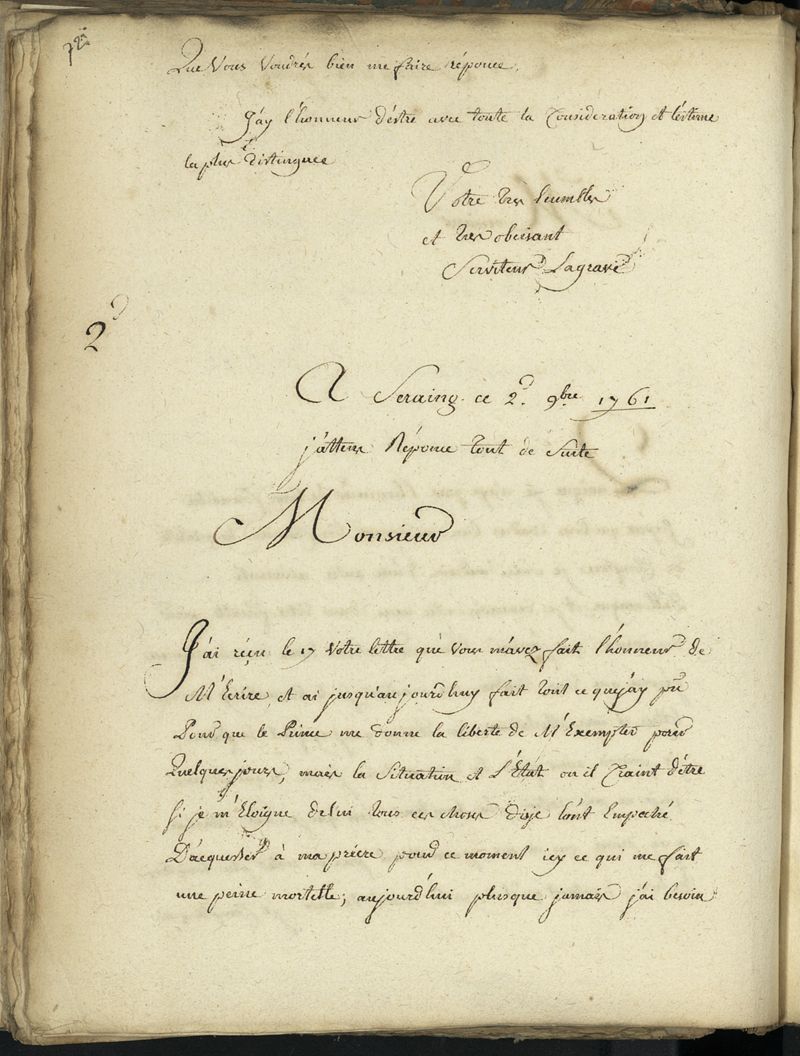 Que Vous Voudrés bien me faire réponce.
J'ay l'honneur d'éstre avec toute la Consideration et l'estime
la plus distinguee
Votre tres humble
et tres obeisant
Serviteur Lagrave
2d
A Seraing ce 2d. 9bre 1761
j'attens Réponce tout de Suite
Monsieur
J'ai réçu le 17 Votre lettre que vous m'avez fait l'honneur de
M'Ecrire, et ai jusqu'au jourd'huy fait tout ce que j'ay pû
Pour que le Prince me donne la liberté de M'Exempter pour
Quelques jours, mais la Situation et L'Etat ou il Craint d'étre
si je m'Eloigne de lui tous ces choses dis je l'ont Empeché
D'acquesser à ma priere pour ce moment icy ce qui me fait
une peine mortelle; aujourd'hui plusque jamais j'ai besoin